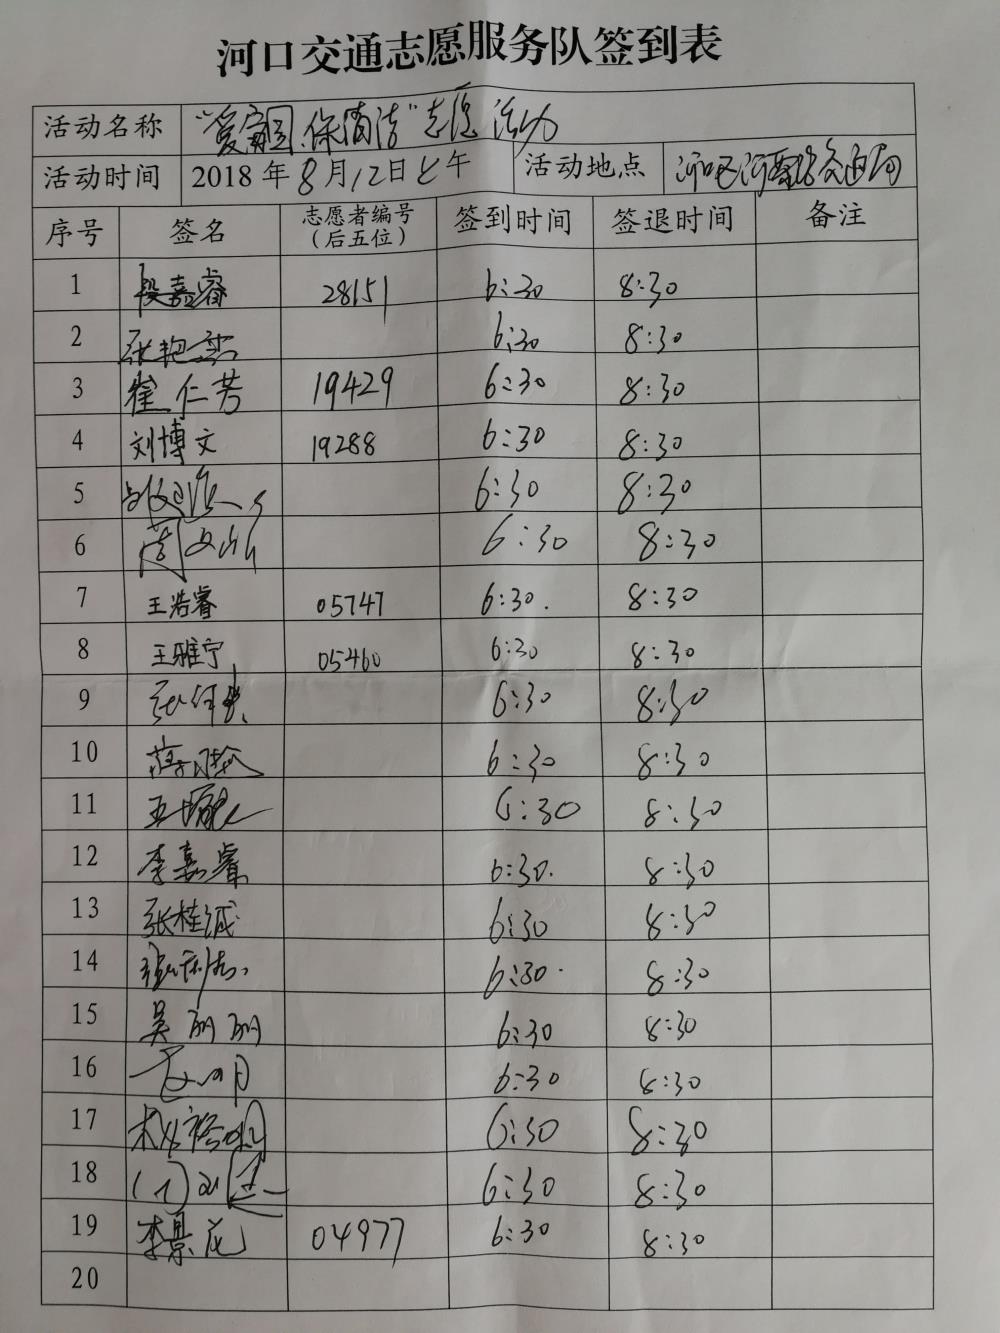 河口交通志愿服务队签到表
活动名称 "爱家园、保清洁"志愿活动
活动时间 2018年8月12日上午 活动地点
序号 签名 志愿者编号（后五位） 签到时间 签退时间 备注
1 段嘉睿 28151 6:30 8:30
2 张艳 6:30 8:30
3 崔仁芳 19429 6:30 8:30
4 刘博文 19288 6:30 8:30
5 6:30 8:30
6 6:30 8:30
7 王浩睿 05747 6:30. 8:30
8 王雅宁 05460 6:30 8:30
9 6:30 8:30
10 6:30 8:30
11 6:30 8:30
12 李嘉睿 6:30. 8:30
13 张桂诚 6:30 8:30
14 6:30. 8:30
15 吴丽丽 6:30 8:30
16 6:30 8:30
17 6:30 8:30
18 6:30 8:30
19 李景花 04977 6:30 8:30
20